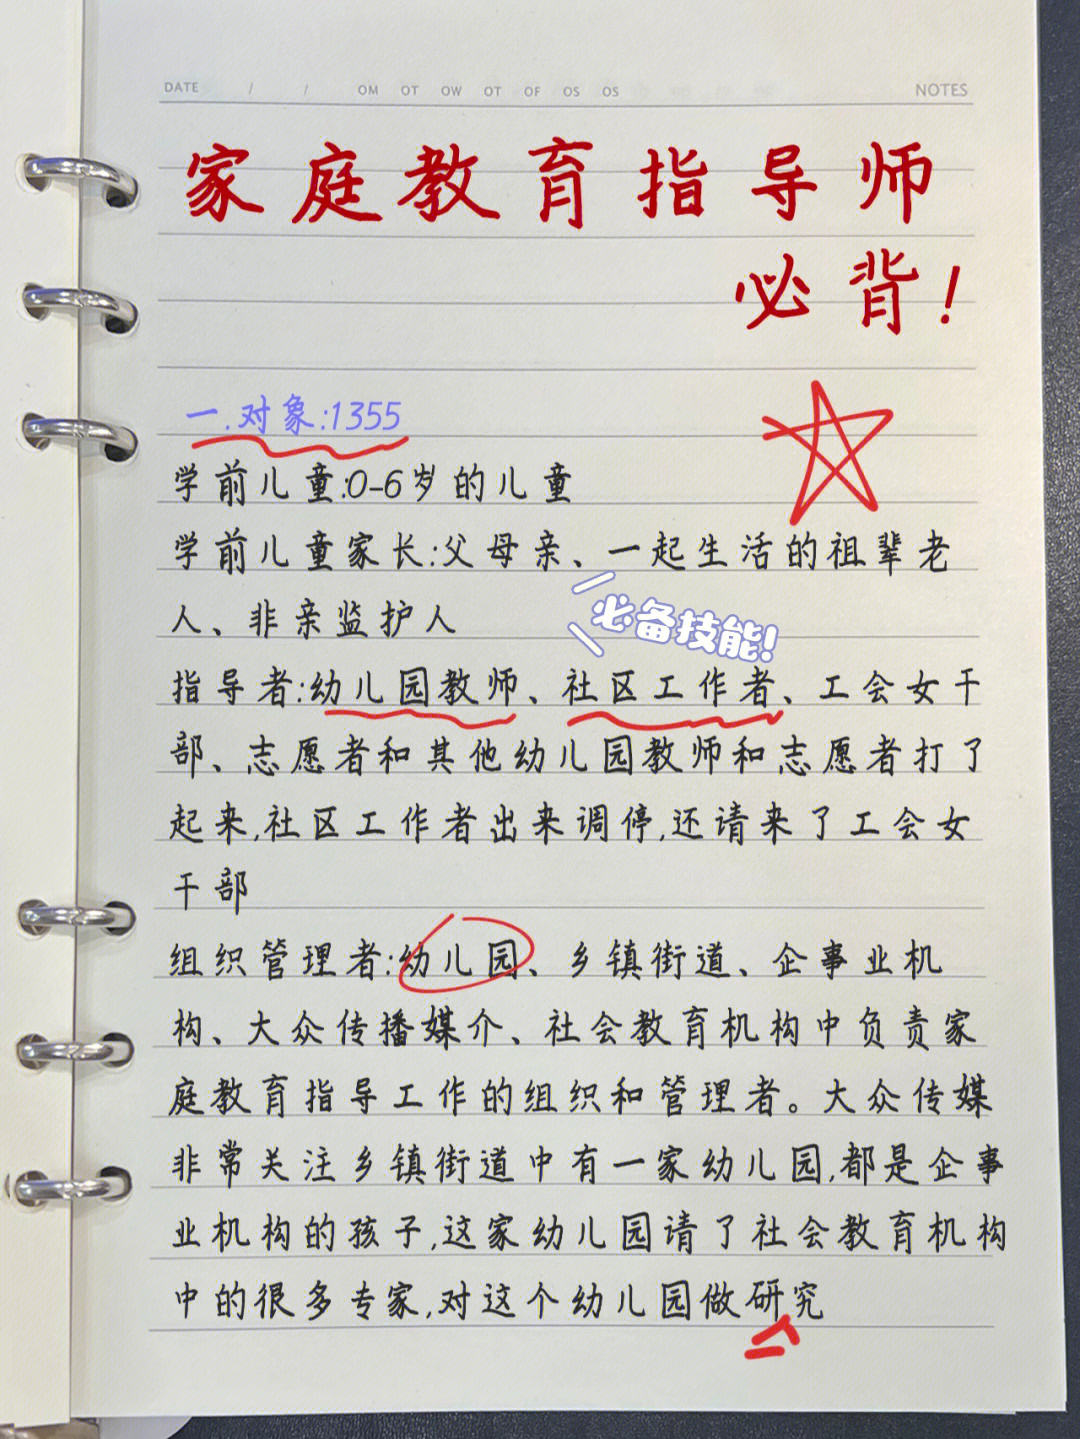 DATE / / OM OT OW OT OF OS OS NOTES
家庭教育指导师
必背!
一.对象:1355
学前儿童:0-6岁的儿童
学前儿童家长:父母亲、一起生活的祖辈老
人、非亲监护人
必备技能!
指导者:幼儿园教师、社区工作者、工会女干
部、志愿者和其他幼儿园教师和志愿者打了
起来,社区工作者出来调停,还请来了工会女
干部
组织管理者:幼儿园、乡镇街道、企事业机
构、大众传播媒介、社会教育机构中负责家
庭教育指导工作的组织和管理者。大众传媒
非常关注乡镇街道中有一家幼儿园,都是企事
业机构的孩子,这家幼儿园请了社会教育机构
中的很多专家,对这个幼儿园做研究